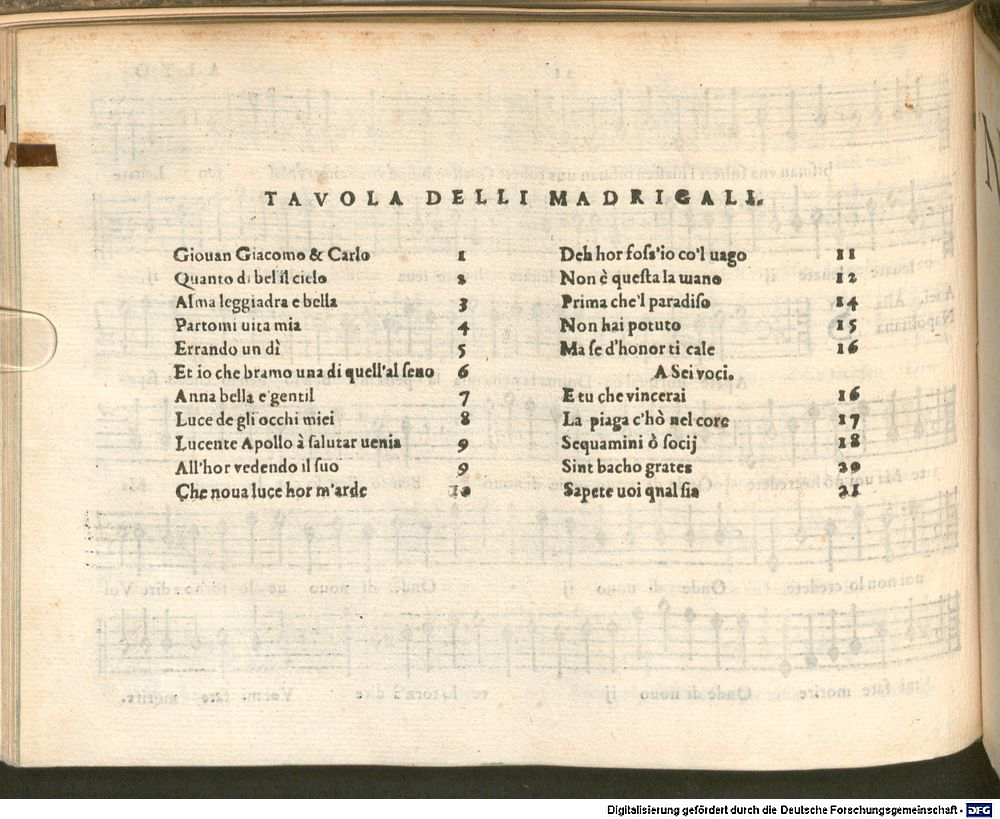 TAVOLA DELLI MADRIGALI.
Giouan Giacomo & Carlo 1
Quanto di bel il cielo 2
Alma leggiadra e bella 3
Partomi uita mia 4
Errando un dì 5
Et io che bramo una di quell'al seno 6
Anna bella e gentil 7
Luce de gli occhi miei 8
Lucente Apollo à salutar uenia 9
All'hor vedendo il suo 9
Che noua luce hor m'arde 10
Deh hor foss'io co'l uago 11
Non è questa la mano 12
Prima che'l paradiso 14
Non hai potuto 15
Ma se d'honor ti cale 16
A Sei voci.
E tu che vincerai 16
La piaga c'hò nel core 17
Sequamini ò socij 18
Sint bacho grates 20
Sapete uoi qual sia 21
Digitalisierung gefördert durch die Deutsche Forschungsgemeinschaft - DFG